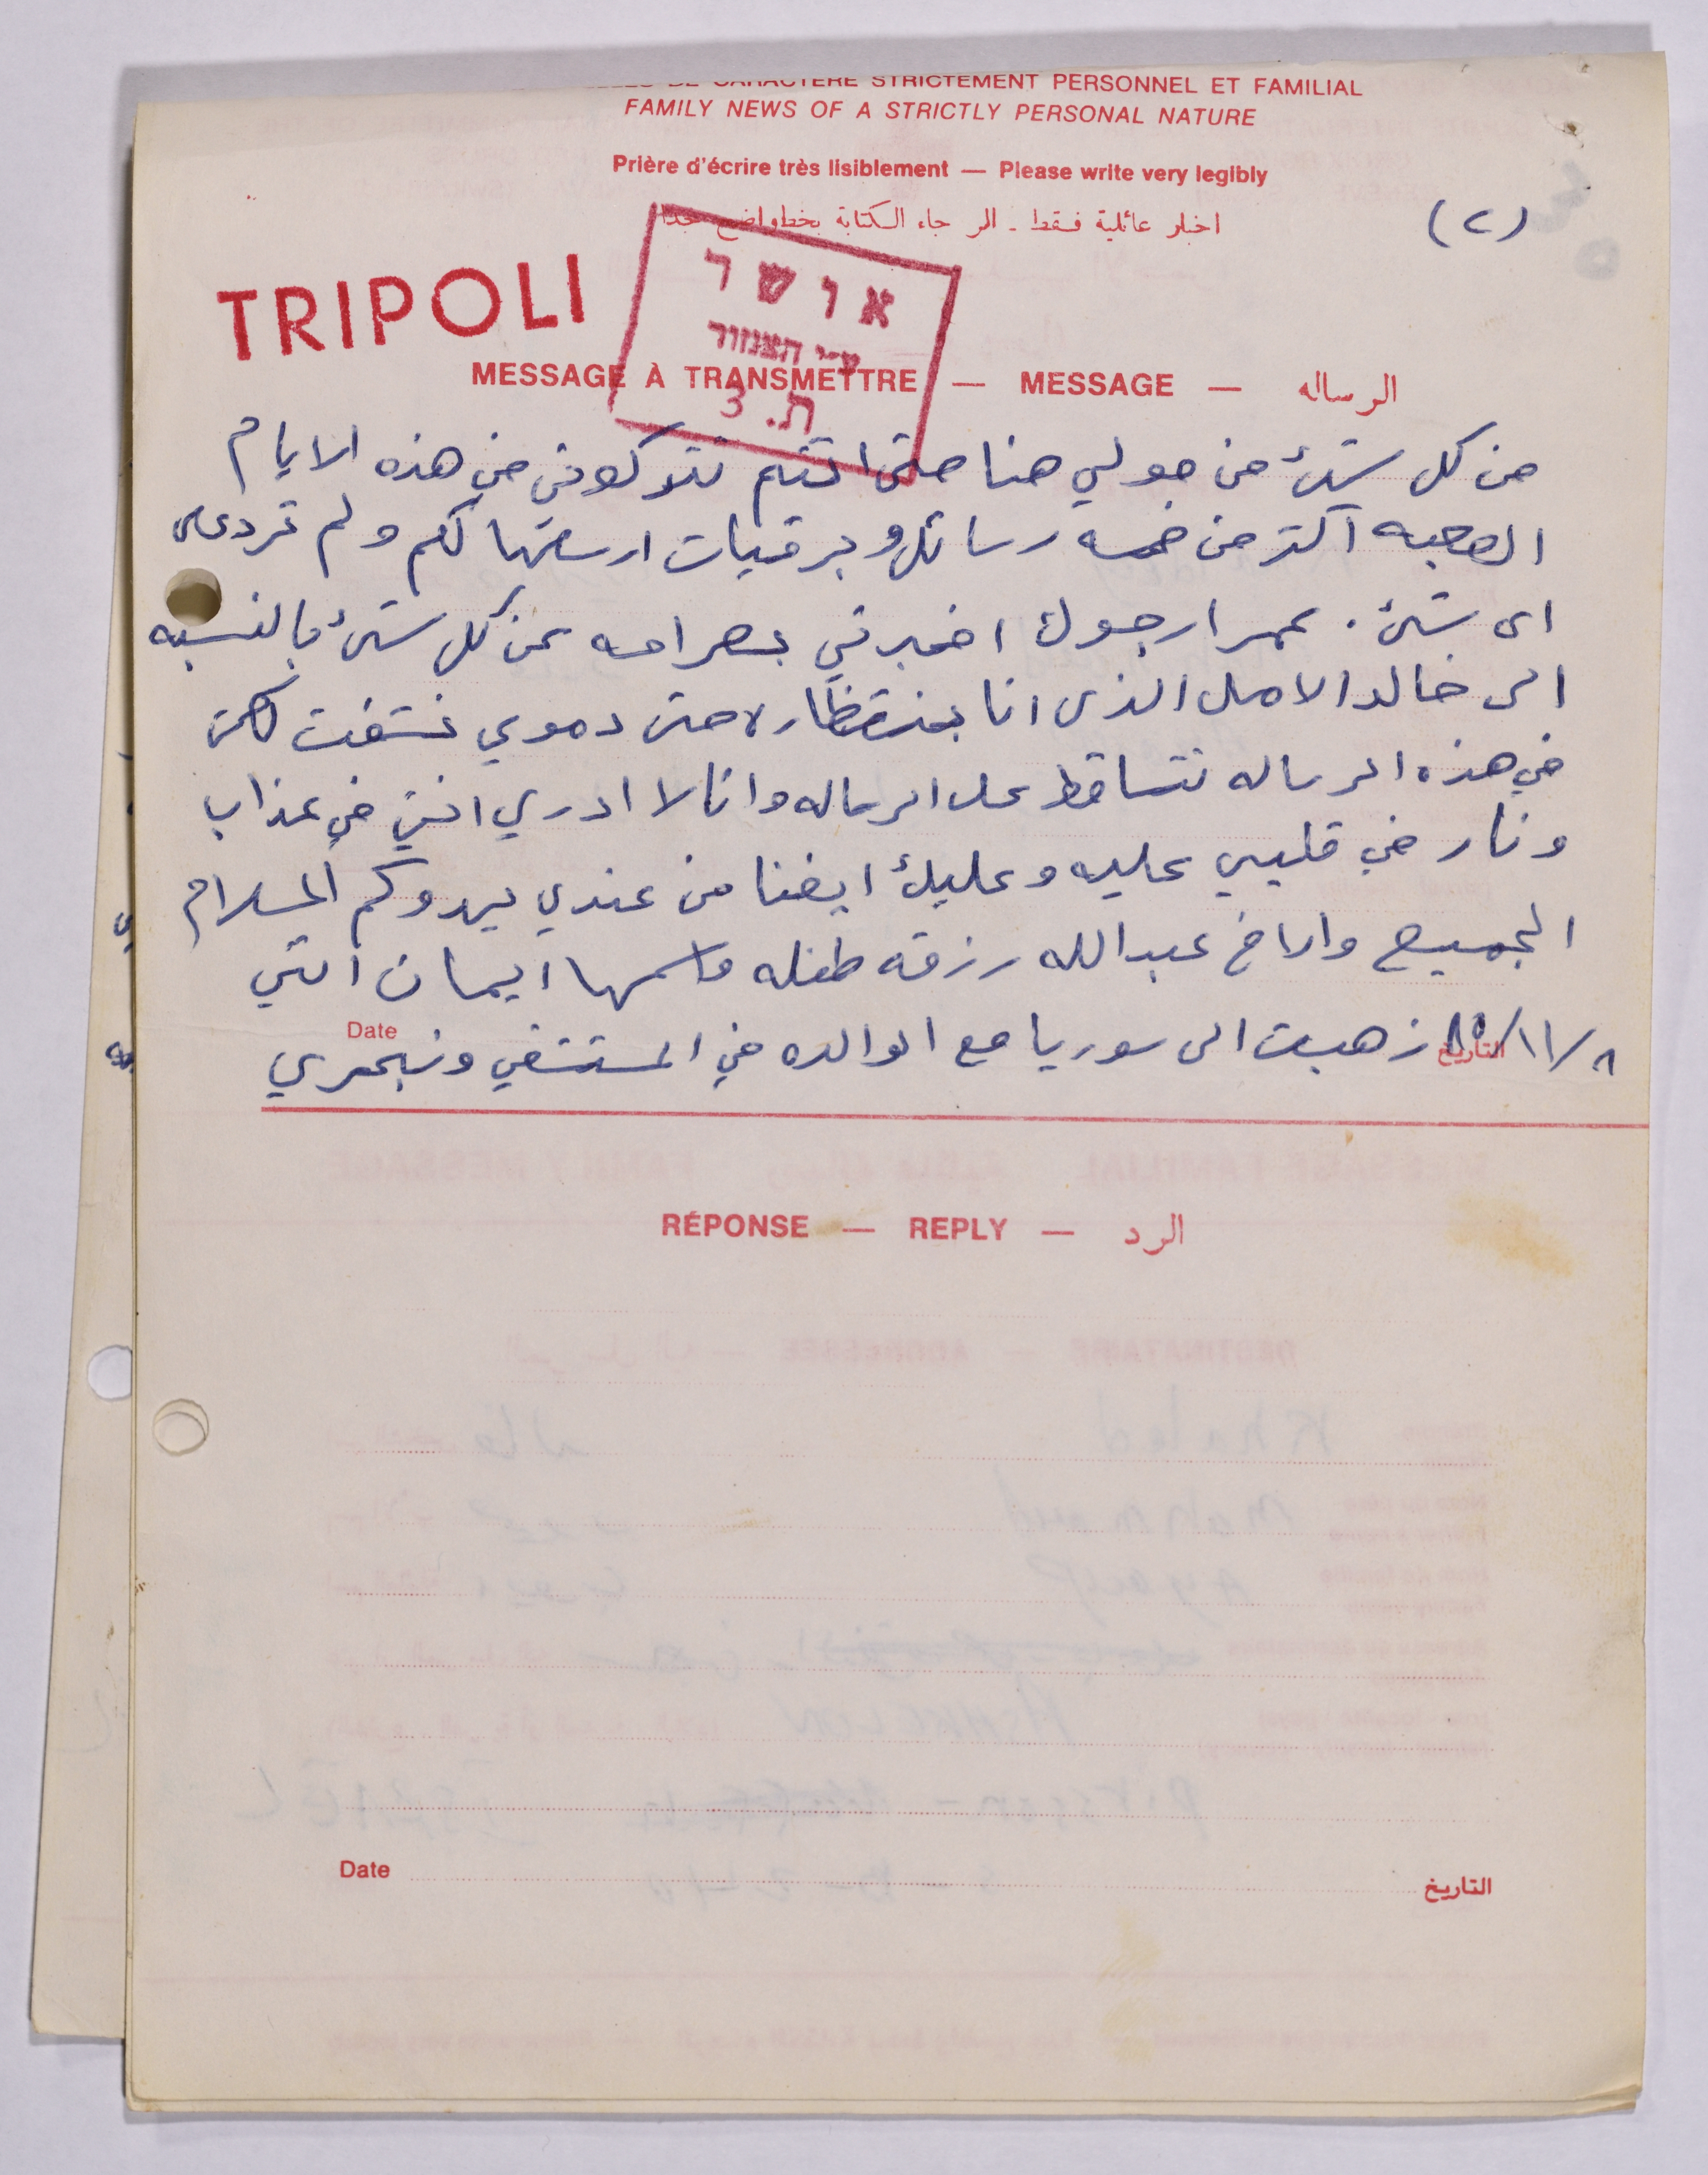 DE CARACTÈRE STRICTEMENT PERSONNEL ET FAMILIAL
FAMILY NEWS OF A STRICTLY PERSONAL NATURE
Prière d'écrire très lisiblement — Please write very legibly
اخبار عائلية فقط - الرجاء الكتابة بخط واضح جدا
(٢)
TRIPOLI
אושר
ע"י הצנזור
ת. 3
MESSAGE À TRANSMETTRE — MESSAGE — الرساله
من كل شئ من حولي هنا حتى انتم تتركوني في هذه الايام
الصعبه اكتر من خمسه رسائل وبرقيات ارسلتها لكم ولم تردعلى
اى شئ . عمر ارجوك اخبرني بصراحه عن كل شئ بالنسبه
الى خالد الامل الذى انا بنتظاره حتى دموي
في هذه الرساله تتساقط على الرساله وانا لا ادري انني في عذاب
ونار في قلبي عليه وعليك ايضا من عندي يهدوكم السلام
الجميع والاخ عبدالله رزقه طفله واسمها ايمان انني
Date
التاريخ
٨٥/١١/٨ ذهبت الى سوريا مع الوالده في المستشفي
RÉPONSE — REPLY — الرد
Date
التاريخ